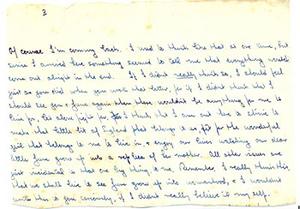 3
Of course I'm coming back. I used to think like that at one time, but
since I arrived here something seemed to tell me that everything would
come out alright in the end. If I didn't really think so, I should feel
just as you did when you wrote the letter, for if I didn't think that I
should see you & June again then there wouldn't be anything for me to
live for, let alone fight for. I think that I am out here to
make that little bit of England that belongs to us fit for the wonderful
girl that belongs to me to live in, & enjoy our lives watching our
little June grow up into a replica of her mother. All other issues are
just incidental to that one big thing to me. Remember I really think this,
that we shall live to see June grow up into womanhood, & I wouldn't
write this to you seriously, if I didn't really believe it myself.